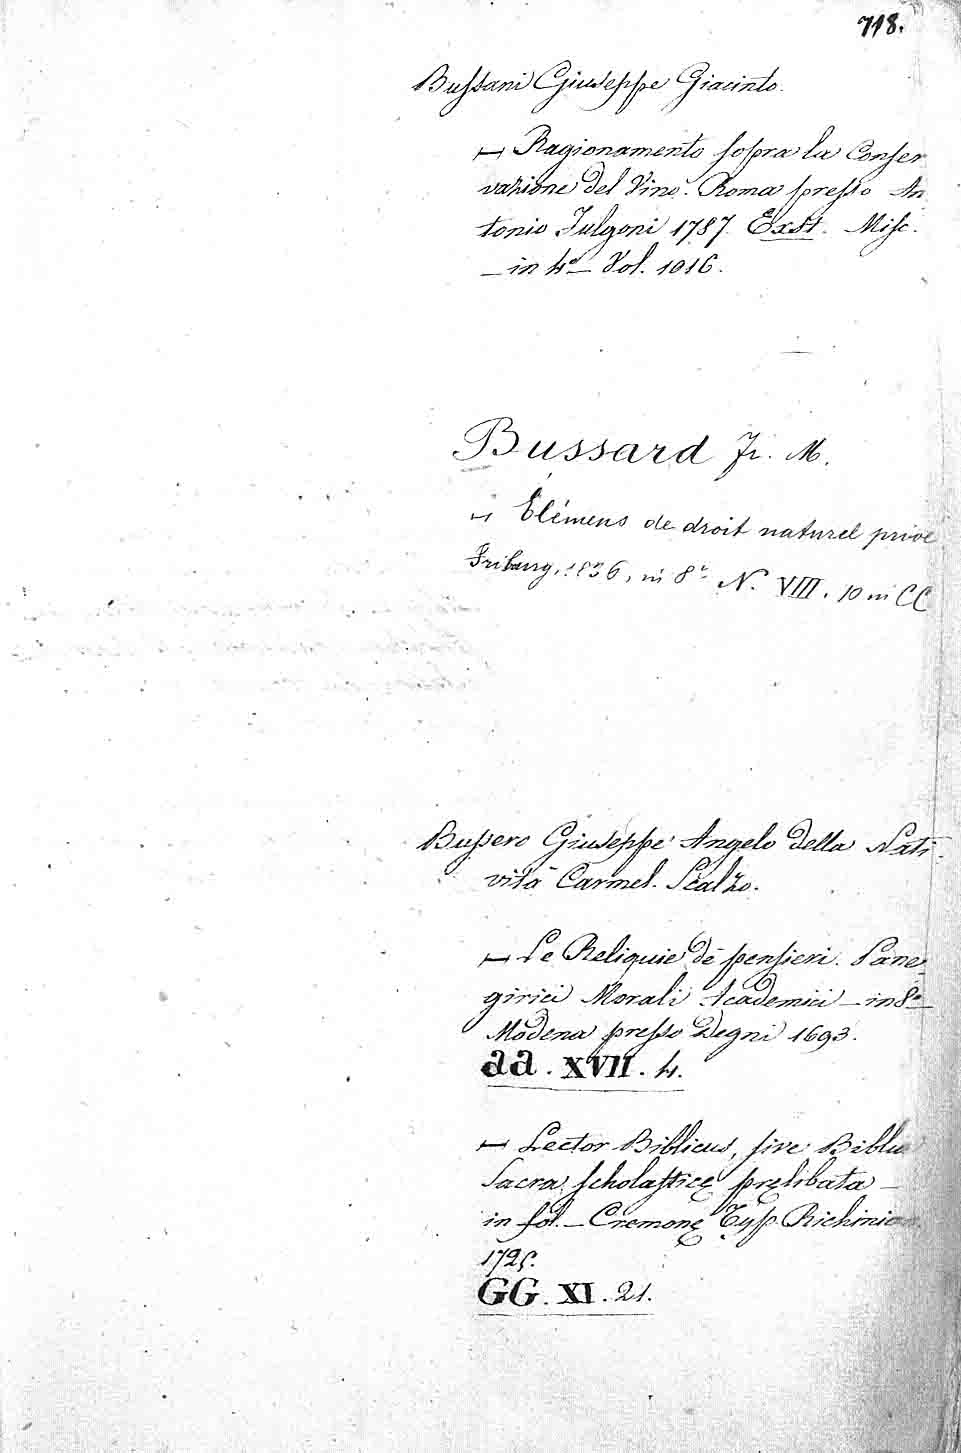 718.
Bussani Giuseppe Giacinto.
— Ragionamento sopra la Conser
vazione del Vino. Roma presso An
tonio Fulgoni 1787. Exst. Misc.
— in 4º — Vol. 1016.
Bussard Fr. M.
— Élémens de droit naturel privé
Fribourg, 1836, in 8º N. VIII. 10 in CC
Bussero Giuseppe Angelo della Nati
vità Carmel. Scalzo.
— Le Reliquie de' pensieri. Pane
girici Morali Academici — in 8º —
Modena presso Degni 1693.
aa. XVII. 4.
— Lector Biblicus, sive Biblia
Sacra scholasticę pręlibata —
in fol. — Cremonę Typ. Richini
1725.
GG. XI. 21.